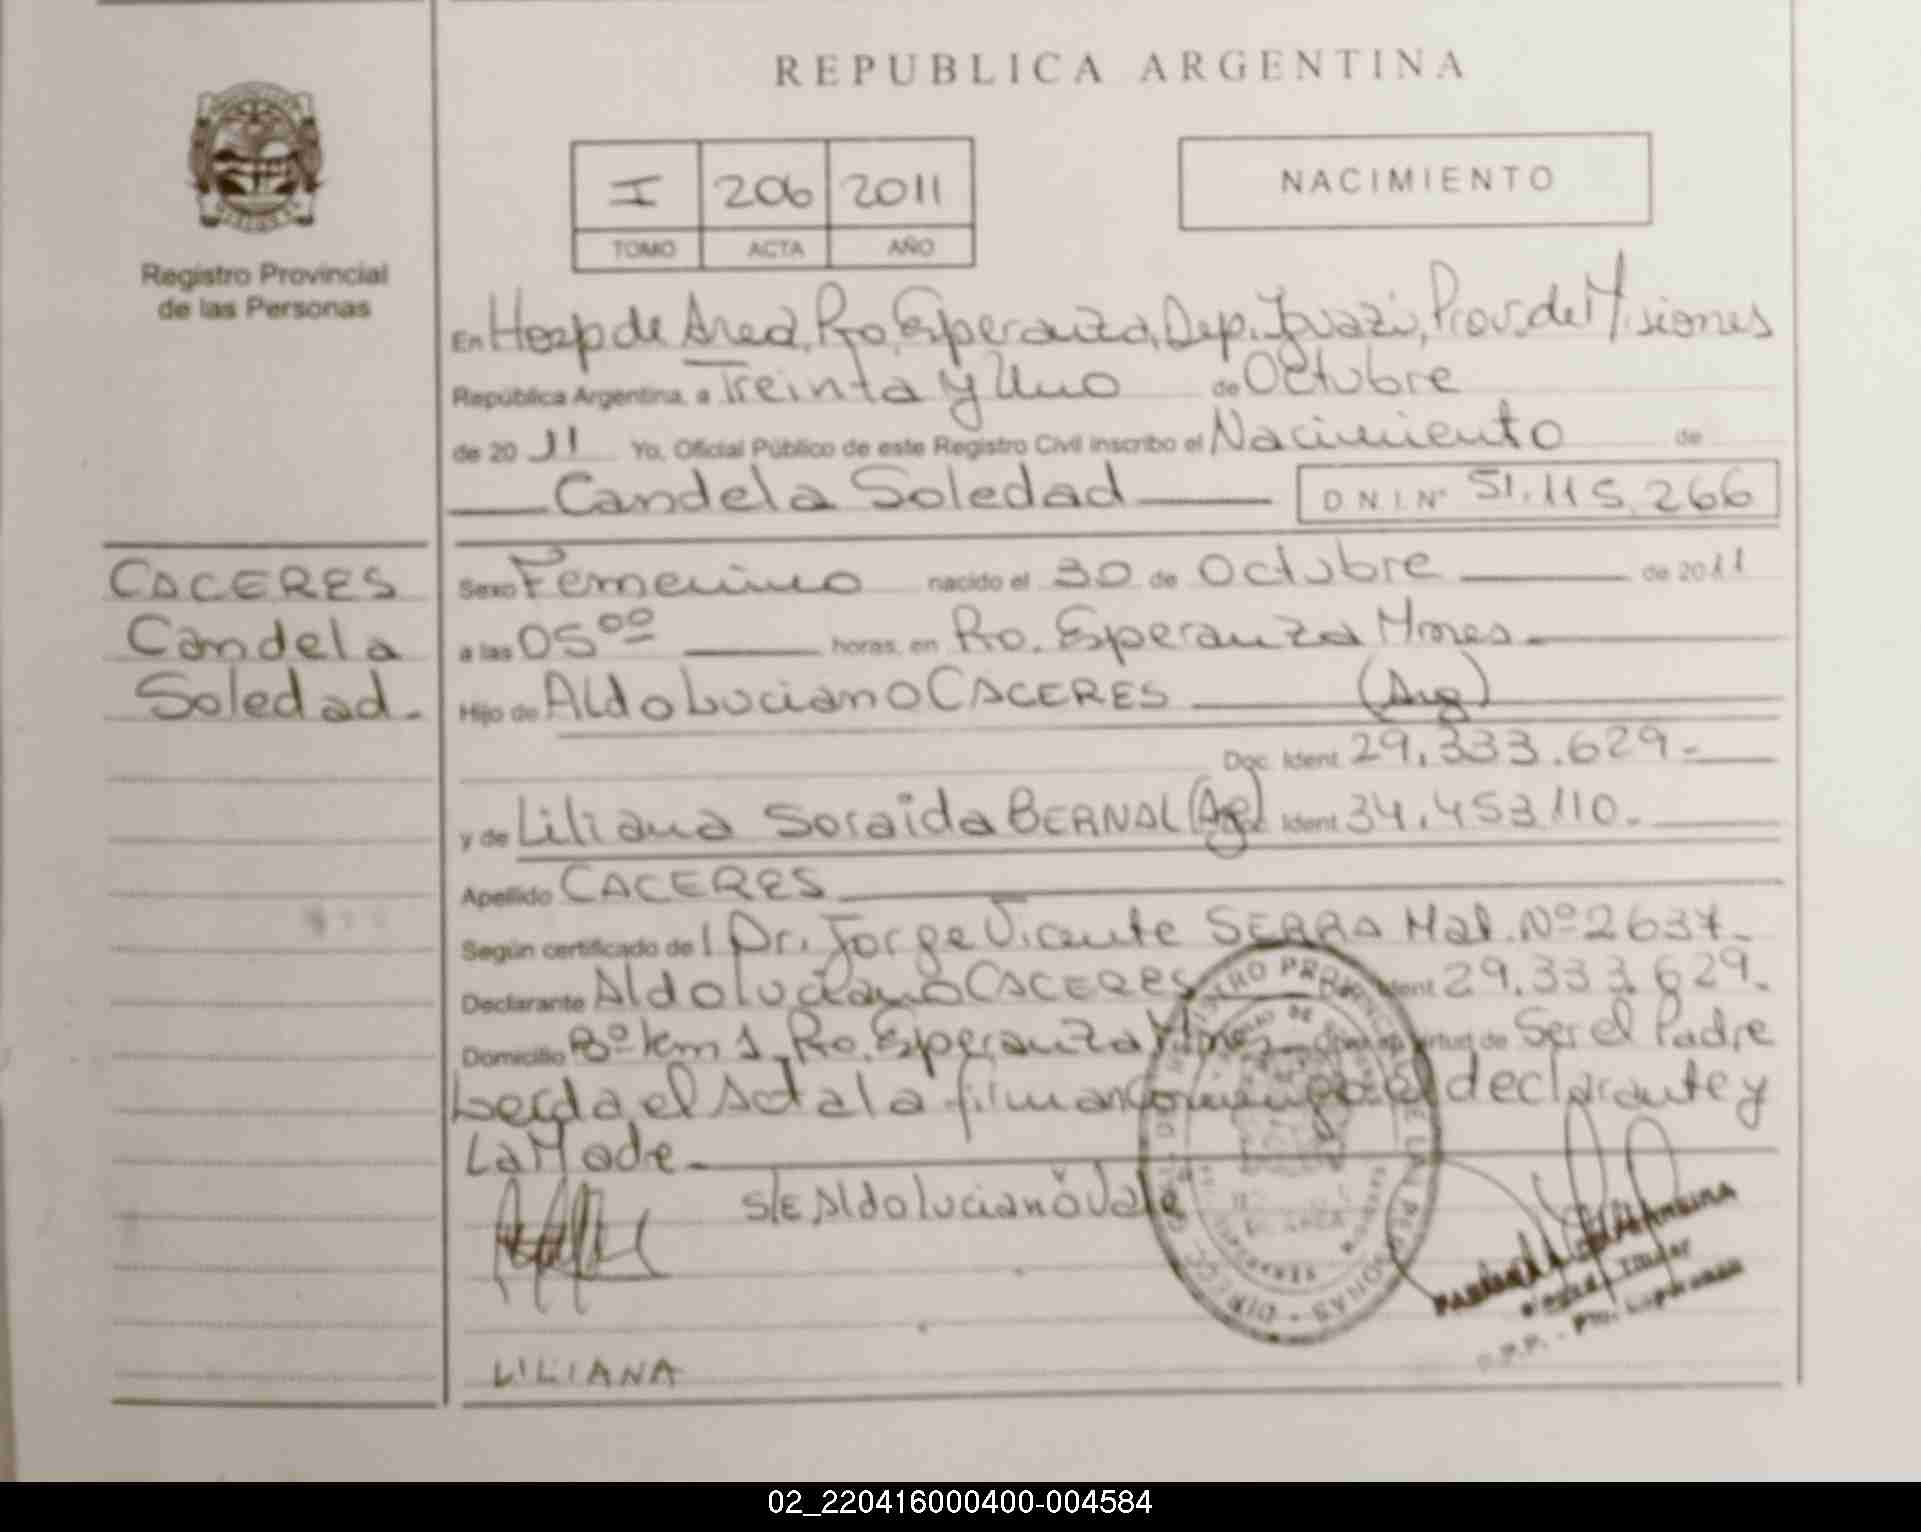 REPUBLICA ARGENTINA
Registro Provincial
de las Personas
I 206 2011
TOMO ACTA AÑO
NACIMIENTO
En Hosp de Area, Pto. Esperanza, Dep. Iguazú, Prov. de Misiones
República Argentina, a Treinta y Uno de Octubre
de 2011 Yo, Oficial Público de este Registro Civil inscribo el Nacimiento de
Candela Soledad D.N.I. Nº 51.115.266
CACERES
Candela
Soledad.-
Sexo Femenino nacido el 30 de Octubre de 2011
a las 05⁰⁰ horas, en Pto. Esperanza Mnes.-
Hijo de Aldo Luciano CACERES (Arg)
Doc. Ident. 29.333.629.-
y de Liliana Soraida BERNAL (Arg) Ident. 34.453.110.-
Apellido CACERES
Según certificado del Dr. Jorge Vicente SERRA Mat. Nº 2637.-
Declarante Aldo Luciano CACERES Ident 29.333.629.-
Domicilio Bº km 1, Pto. Esperanza Mnes virtud de Ser el Padre
Leida el acta la firman conmigo el declarante y
La Madre.-
S/E Aldo Luciano Vale
LILIANA
REGISTRO PROVINCIAL DE LAS PERSONAS
02_220416000400-004584